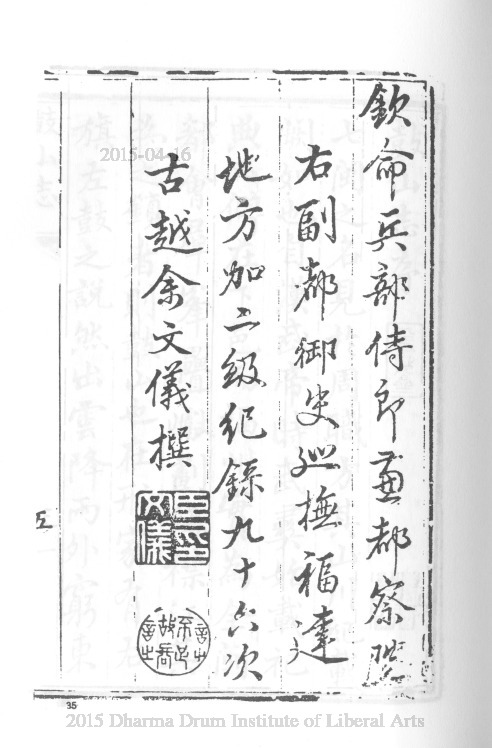 欽命兵部侍郎兼都察院
右副都御史巡撫福建
地方加二級紀錄九十六次
古越余文儀撰
2015-04-16
35
2015 Dharma Drum Institute of Liberal Arts